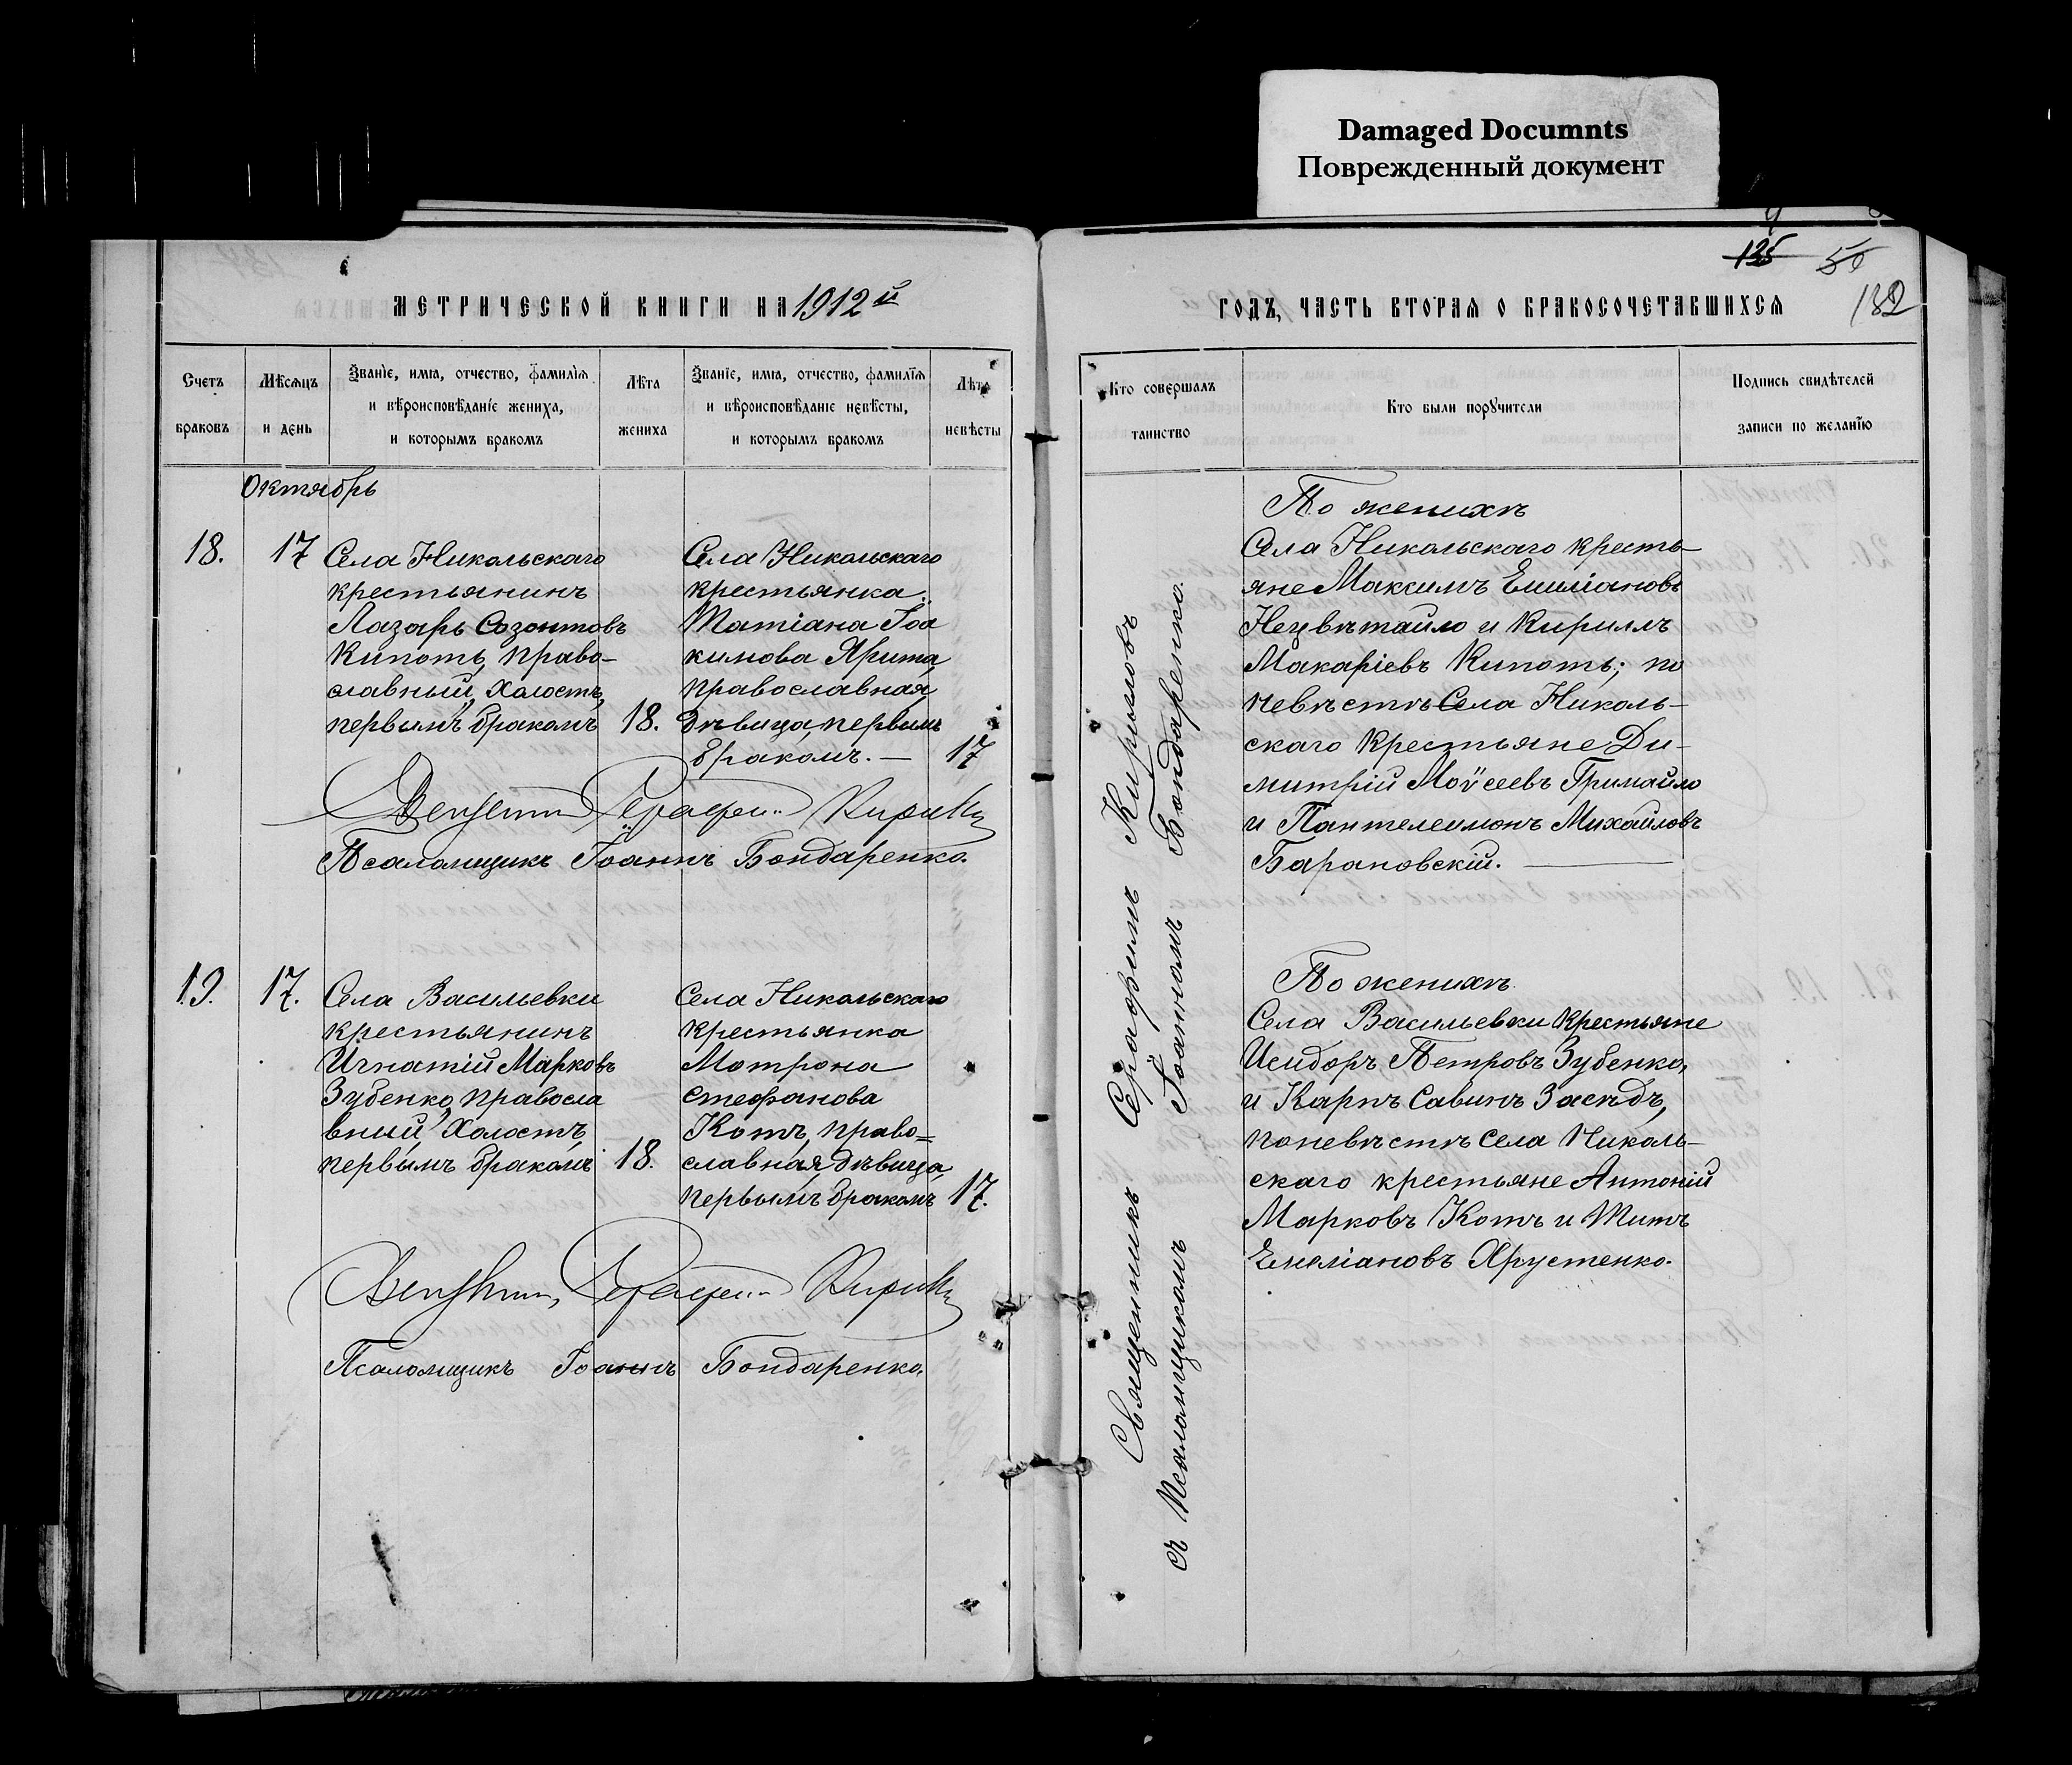 Damaged Documnts
Поврежденный документ
125 50
182
МЕТРИЧЕСКОЙ КНИГИ НА 1912 й
ГОДЪ, ЧАСТЬ ВТОРАЯ О БРАКОСОЧЕТАВШИХСЯ
Счетъ браковъ
Мѣсяцъ и день
Званіе, имя, отчество, фамилія
и вѣроисповѣданіе жениха,
и которымъ бракомъ
Лѣта жениха
Званіе, имя, отчество, фамилія
и вѣроисповѣданіе невѣсты,
и которымъ бракомъ
Лѣта невѣсты
Кто совершалъ
таинство
Кто были поручители
Подпись свидѣтелей
записи по желанію
Октябрь
18.
17
Села Никольскаго
крестьянинъ
Лазарь Созонтовъ
Кипоть, право-
славный, холостъ,
первымъ бракомъ
18.
Села Никольскаго
крестьянка
Татіана Іоа
кимова Ярита,
православная,
дѣвица, первымъ
бракомъ. —
17
Священникъ Серафимъ Кириловъ
Псаломщикъ Іоаннъ Бондаренко.
19.
17.
Села Васильевки
крестьянинъ
Игнатій Марковъ
Зубенко, правосла
вный, холостъ,
первымъ бракомъ
18.
Села Никольскаго
крестьянка
Мотрона
Стефанова
Котъ, право=
славная, дѣвица,
первымъ бракомъ
17.
Священникъ Серафимъ Кириловъ
Псаломщикъ Іоаннъ Бондаренко.
Священникъ Серафимъ Кириловъ
съ Псаломщикомъ Іоанномъ Бондаренко.
По женихѣ
Села Никольскаго кресть-
яне Максимъ Емиліановъ
Нецвѣтайло и Кириллъ
Макаріевъ Кипоть; по
невѣстѣ Села Николь-
скаго крестьяне Ди-
митрій Моѵсеевъ Гримайло
и Пантелеимонъ Михайловъ
Барановскій. —
По женихѣ
Села Васильевки крестьяне
Исидоръ Петровъ Зубенко,
и Карпъ Савинъ Засѣдъ,
по невѣстѣ села Николь-
скаго крестьяне Антоній
Марковъ Котъ и Титъ
Емеліановъ Хрустенко.